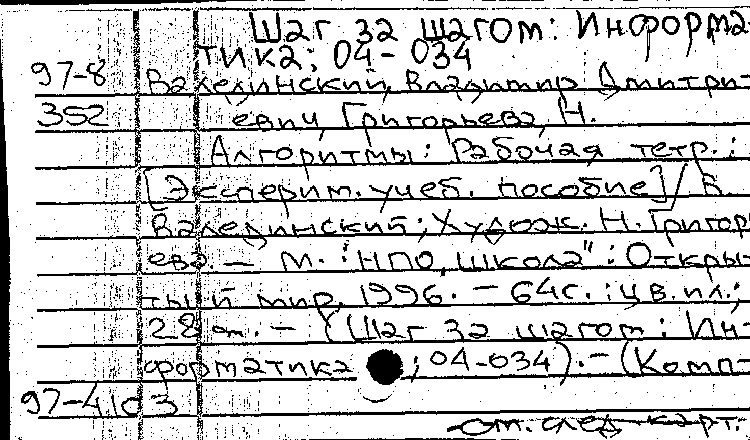 Шаг за шагом: Информа-
тика; 04-034
97-8 Валединский, Владимир Дмитри-
352 евич, Григорьева, Н.
Алгоритмы: Рабочая тетр.:
[Эксперим. учеб. пособие] / В.
Валединский; Худож. Н. Григорь
ева. — М. : НПО "Школа" : Откры-
тый мир, 1996. — 64с. : цв. ил.;
28 см. — (Шаг за шагом: Ин-
форматика ; 04-034). — (Комп-
97-4103
См. след. карт.